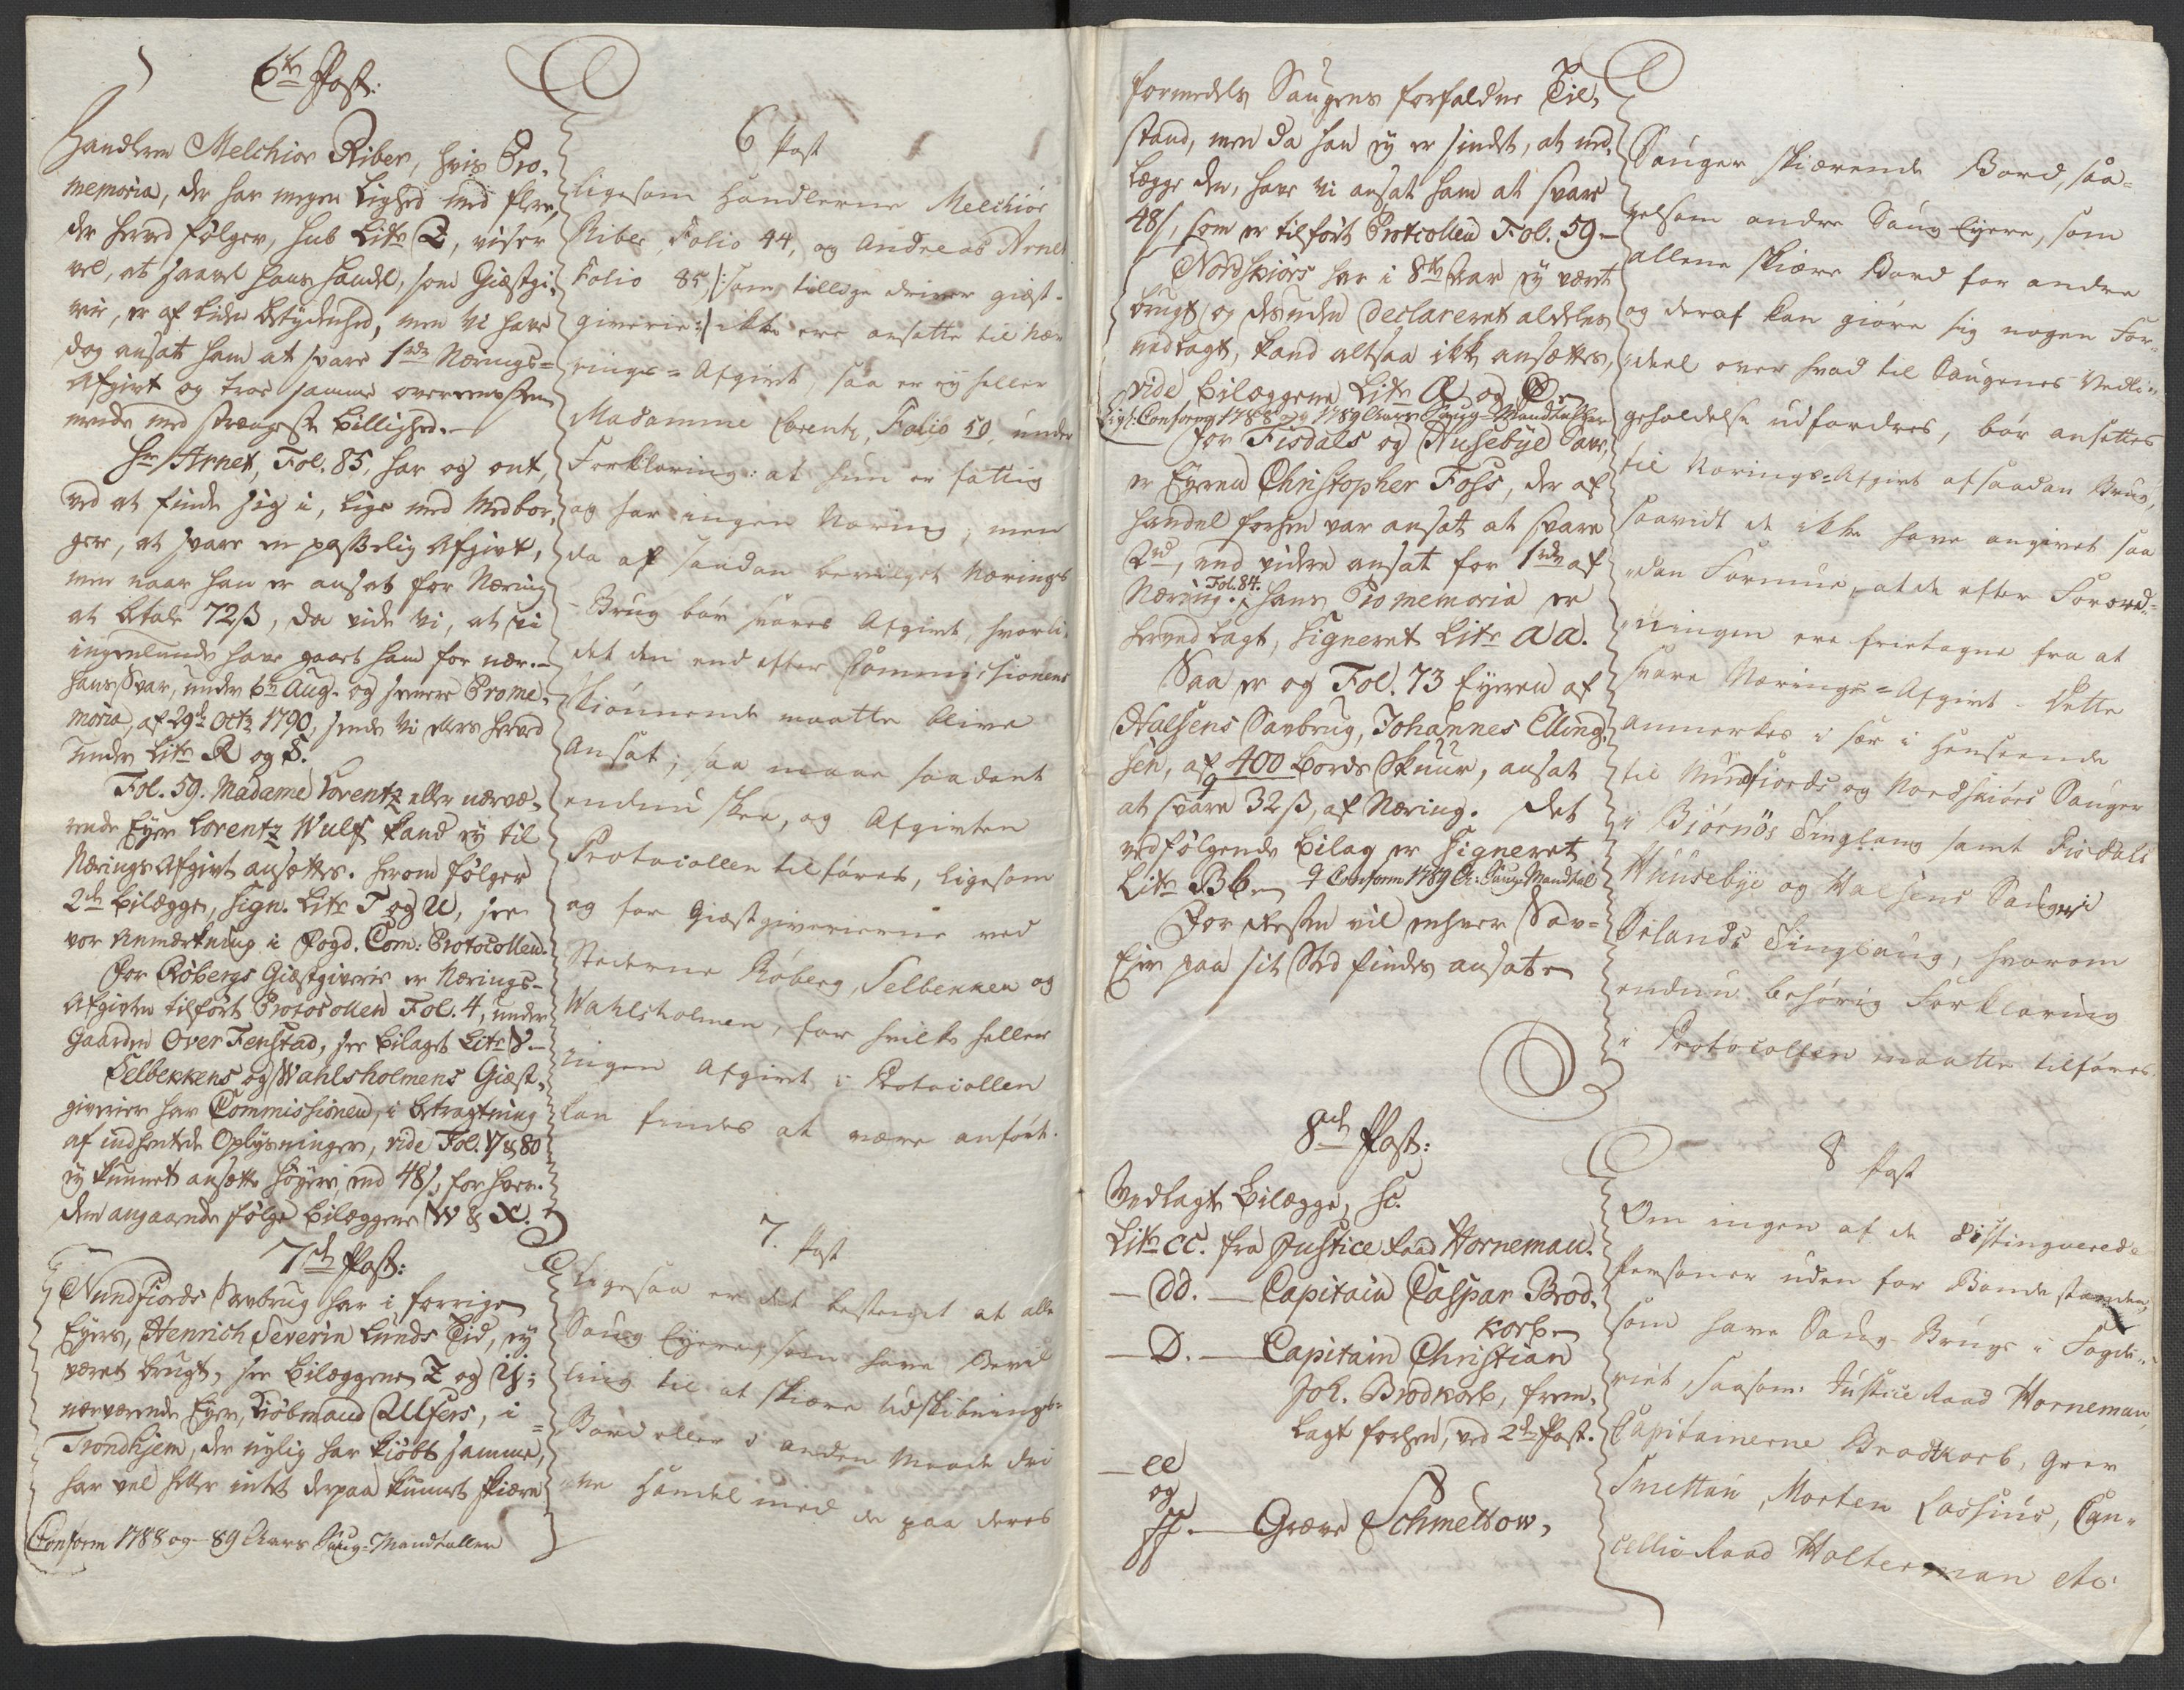 6te Post:
Handleren Melchior Riber, hvis Pro-
memoria, der har megen Lighed med flere,
der herved følger, sub Litr Q, viser
vel, at saavel hans Handel, som Giæstgi-
verie, er af liden Betydenhed, men vi have
dog ansat ham at svare 1 rdr Nærings-
Afgivt og troe samme overeensstem-
mende med strængeste Billighed.
Hr Arnet, Fol. 85, har og ont,
ved at finde sig i, lige med Medbor-
gere, at svare en passelig Afgivt,
men naar han er ansat for Næring
at betale 72 ß, da vide vi, at vi
ingenlunde have gaaet ham for nær.
hans Svar, under 6te Aug. og senere Prome-
moria, af 29de Octr 1790, sende vi ellers herved
under Litr R og S.
Fol. 59. Madame Lorentz eller nærvæ-
rende Eyer Lorentz Wulf kand ey til
Nærings Afgivt ansættes. herom følger
2de Bilægge, Sign. Litr T og U, see
vor Anmærkning i Fogd. Com: Protocollen.
For Røbergs Giæstgiverie er Nærings-
Afgivten tilført Protocollen Fol. 4, under
Gaarden Over Fenstad, see Bilaget Litr V.
Selbekkens og Wahlsholmens Giæst-
giverier har Commissionen, i Betragtning
af indhentede Oplysninger, vide Fol. 17 & 80
ey kunnet ansætte høyere, end 48 ß, for hver.
dem angaaende følge Bilæggene W & X.
7de Post:
Nundfiords Savbrug har i forrige
Eyers, Henrich Severin Lunds Tid, ey
været brugt, see Bilæggene Z og ij;
nærværende Eyer, Kiöbmand Ulfers, i
Trondhjem, der nylig har kiöbt samme,
har vel heller intet derpaa kunnet skiære
Conform 1788 og 89 Aars Saug-Mandtaller
6 Post
Ligesom Handlerne Melchior
Riber, Folio 44, og Andreas Arnet
Folio 85 /: som tillige driver giæst-
giverie :/ ikke ere ansatte til Næ-
rings-Afgivt, saa er ey heller
Madamme Lorentz, Folio 59, under
Forklaring: at hun er fattig
og har ingen Næring; men
da af saadan bevilget Nærings
Brug bør svares Afgivt, hvorli-
det den end efter Commissionens
Skiønnende maatte blive
Ansat; saa maae saadant
endnu skee, og Afgivten
Protocollen tilføres, ligesom
og for Giæstgiverierne ved
Stederne Røberg, Selbekken og
Wahlsholmen, for hvilke heller
ingen Afgivt i Protocollen
kan findes at være anført.
7. Post
Ligesaa er det bestemt at alle
Saug Eyere, som have Bevil
ling til at skiære Udskibnings-
Bord eller i anden Maade dri
ve Handel med de paa deres
formedels Saugens forfaldne Til-
stand, men da han ey er sindet, at ned-
lægge den, have vi ansat ham at svare
48 ß, som er tilført Protcollen Fol. 59
Nordskiörs har i 8te Aar ey været
brugt og desuden declareret aldeles
nedlagt, kand altsaa ikke ansættes,
vide Bilæggene Litr Æ og Ø.
Ligl. Conform 1788 og 1789 Aars Saug-Mandtaller
For Fisdals og Husebye Save,
er Eyeren Christopher Foss, der af
Handel forhen var ansat at svare
2 rd, end videre ansat for 1 rdr af
Næring. Fol. 84. Hans Promemoria er
herved lagt, signeret Litr aa.
Saa er og Fol. 73 Eyeren af
Halsens Savbrug, Johannes Elling-
sen, af 400 Bords Skuur, ansat
at svare 32 ß, af Næring. Det
vedfølgende Bilag er signeret
Litr Bb. Conform 1789 A: Saug Mandtal
For Resten vil enhver Sav-
Eier paa sit Sted findes ansat
8de Post:
Vedlagte Bilægge, sc.
Litr cc. fra Justice Raad Horneman.
— dd. — Capitain Caspar Brod-
korb
— D. — Capitain Christian
Joh. Brodkorb, frem-
lagt forhen, ved 2de Post.
— ee
og
ff. — Græve Schmettow,
Sauger skiærende Bord, saa-
velsom andre Saug Eyere, som
allene skiære Bord for andre
og deraf kan giøre sig nogen For-
deel over hvad til Saugenes Vedli-
geholdelse udfordres, bør ansettes
til Nærings-Afgivt af saadan Brug,
saavidt de ikke have angivet saa
dan Formue, at de efter Forord-
ningen ere fritagne fra at
svare Nærings-Afgivt. Dette
anmerkes i sær i Henseende
til Nundfiords og Nordskiørs Sauger
i Biørnörs Tinglaug samt Fisdals
Huusebye og Halsens Sauger i
Ørlands Tinglaug, hvorom
endnu behørig Forklaring
i Protocollen maatte tilføres.
8 Post
Om ingen af de distinguerede
Personer uden for Bondestanden,
som have Saug Brug i Fogde-
riet, saasom: Justice Raad Horneman,
Capitainerne Brodtkorb, Grev
Smettau, Morten Lossius, Can-
cellie Raad Holterman etc: